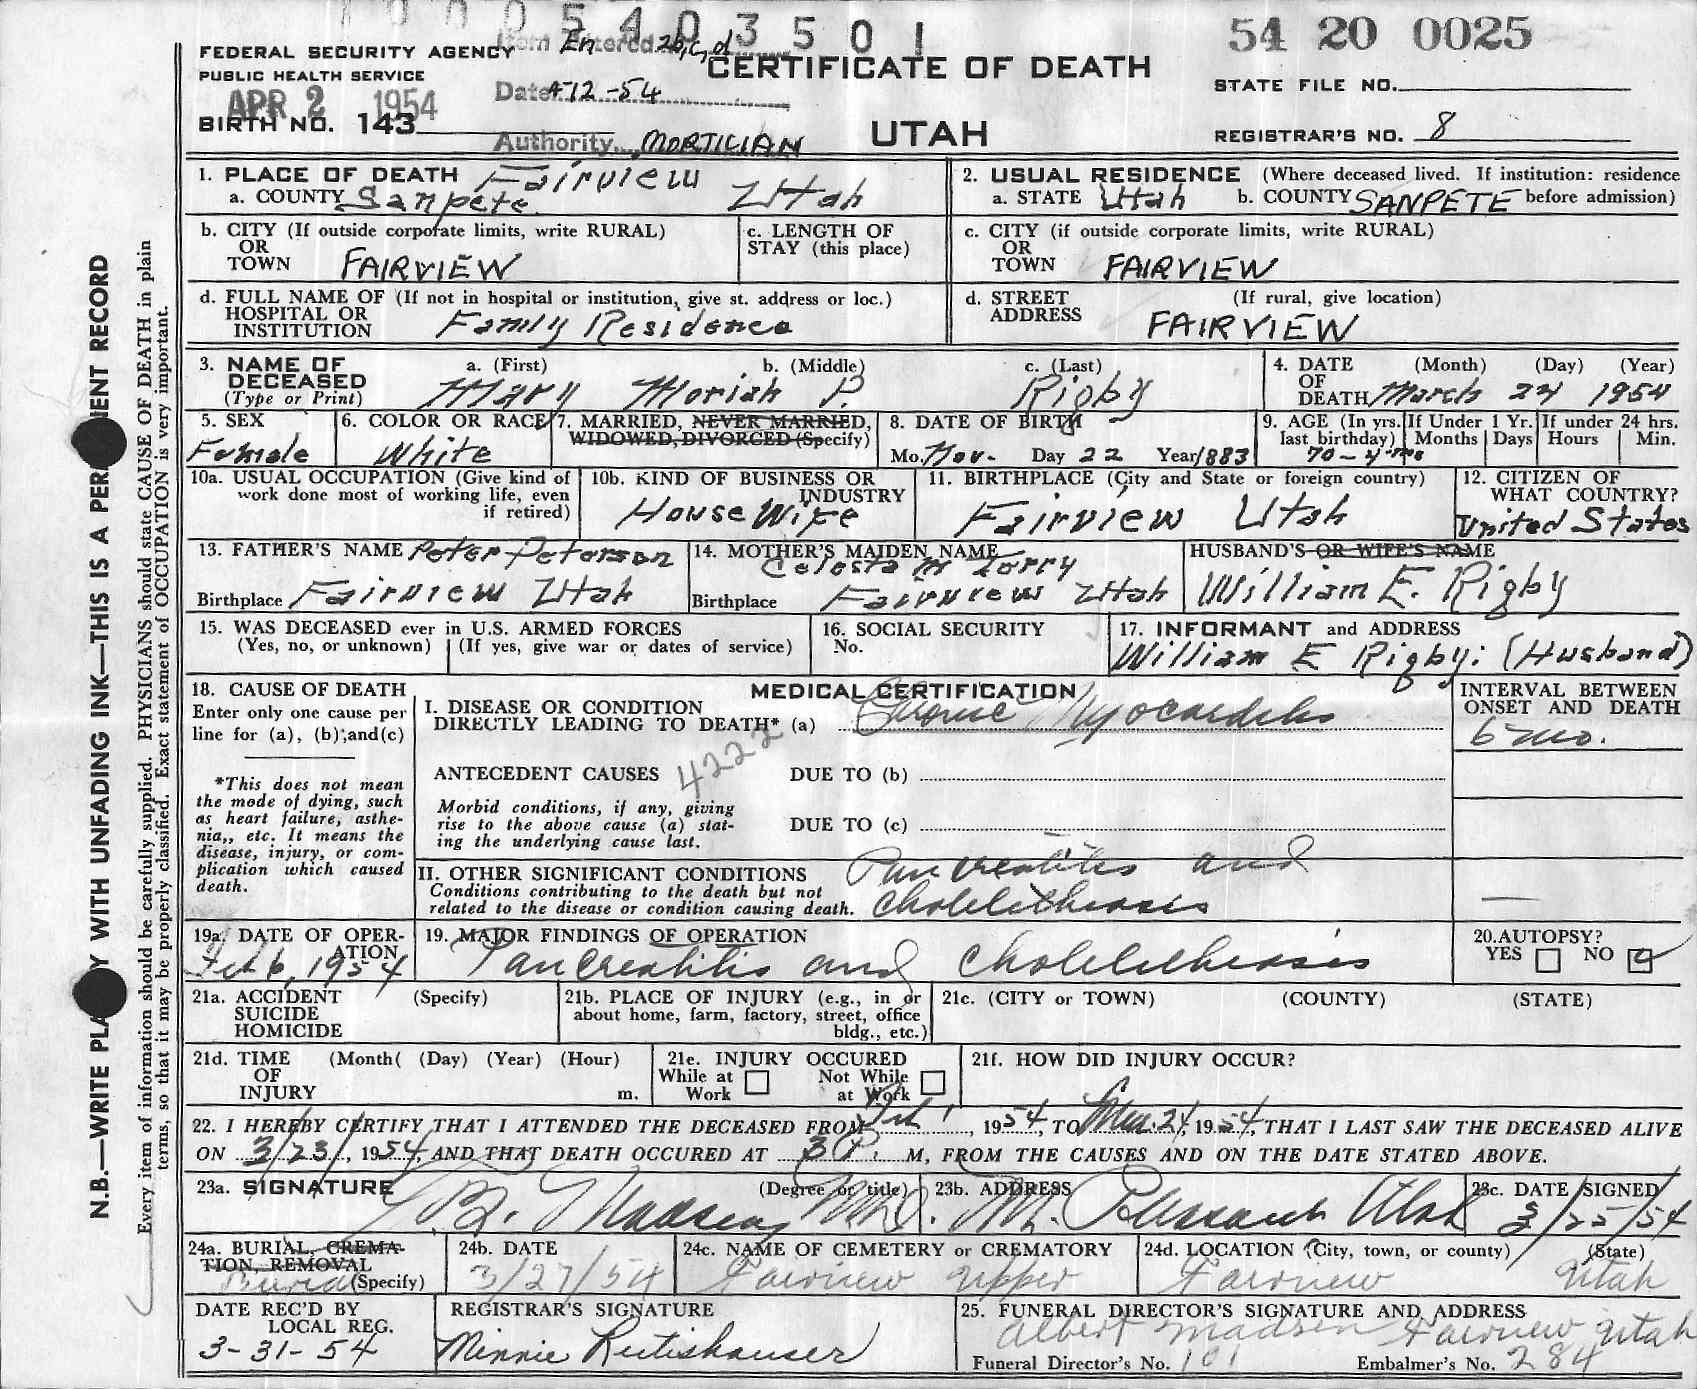 0005403501
54 20 0025
FEDERAL SECURITY AGENCY
PUBLIC HEALTH SERVICE
Item Entered 2b,c,d
CERTIFICATE OF DEATH
STATE FILE NO.
APR 2 1954
Date 4-12-54
BIRTH NO. 143
Authority MORTICIAN
UTAH
REGISTRAR'S NO. 8
1. PLACE OF DEATH Fairview Utah
a. COUNTY Sanpete
2. USUAL RESIDENCE (Where deceased lived. If institution: residence before admission)
a. STATE Utah b. COUNTY SANPETE
b. CITY (If outside corporate limits, write RURAL)
OR
TOWN FAIRVIEW
c. LENGTH OF
STAY (this place)
c. CITY (if outside corporate limits, write RURAL)
OR
TOWN FAIRVIEW
d. FULL NAME OF (If not in hospital or institution, give st. address or loc.)
HOSPITAL OR
INSTITUTION Family Residence
d. STREET (If rural, give location)
ADDRESS FAIRVIEW
3. NAME OF a. (First) b. (Middle) c. (Last)
DECEASED
(Type or Print) Mary Moriah P. Rigby
4. DATE (Month) (Day) (Year)
OF
DEATH March 24 1954
5. SEX
Female
6. COLOR OR RACE
White
7. MARRIED, NEVER MARRIED,
WIDOWED, DIVORCED (Specify)
8. DATE OF BIRTH
Mo. Nov. Day 22 Year 1883
9. AGE (In yrs. last birthday) If Under 1 Yr. If under 24 hrs.
Months Days Hours Min.
70 - 4 mo
10a. USUAL OCCUPATION (Give kind of
work done most of working life, even
if retired)
10b. KIND OF BUSINESS OR
INDUSTRY
House Wife
11. BIRTHPLACE (City and State or foreign country)
Fairview Utah
12. CITIZEN OF
WHAT COUNTRY?
United States
13. FATHER'S NAME Peter Peterson
Birthplace Fairview Utah
14. MOTHER'S MAIDEN NAME
Celesta M Terry
Birthplace Fairview Utah
HUSBAND'S OR WIFE'S NAME
William E. Rigby
15. WAS DECEASED ever in U.S. ARMED FORCES
(Yes, no, or unknown) (If yes, give war or dates of service)
16. SOCIAL SECURITY
No.
17. INFORMANT and ADDRESS
William E Rigby: (Husband)
18. CAUSE OF DEATH
Enter only one cause per
line for (a), (b), and(c)
*This does not mean
the mode of dying, such
as heart failure, asthe-
nia,, etc. It means the
disease, injury, or com-
plication which caused
death.
MEDICAL CERTIFICATION
I. DISEASE OR CONDITION
DIRECTLY LEADING TO DEATH* (a) Chronic Myocarditis
4222
ANTECEDENT CAUSES DUE TO (b)
Morbid conditions, if any, giving
rise to the above cause (a) stat-
ing the underlying cause last.
DUE TO (c)
II. OTHER SIGNIFICANT CONDITIONS
Conditions contributing to the death but not
related to the disease or condition causing death.
Pancreatitis and
Cholelithiasis
INTERVAL BETWEEN
ONSET AND DEATH
6 mo.
—
19a. DATE OF OPER-
ATION
Feb 6, 1954
19. MAJOR FINDINGS OF OPERATION
Pancreatitis and Cholelithiasis
20. AUTOPSY?
YES NO
21a. ACCIDENT (Specify)
SUICIDE
HOMICIDE
21b. PLACE OF INJURY (e.g., in or
about home, farm, factory, street, office
bldg., etc.)
21c. (CITY or TOWN) (COUNTY) (STATE)
21d. TIME (Month( (Day) (Year) (Hour)
OF
INJURY m.
21e. INJURY OCCURED
While at Work Not While at Work
21f. HOW DID INJURY OCCUR?
22. I HEREBY CERTIFY THAT I ATTENDED THE DECEASED FROM Feb 1, 1954, TO Mar. 24, 1954, THAT I LAST SAW THE DECEASED ALIVE
ON 3/23/, 1954, AND THAT DEATH OCCURED AT 3 P. M, FROM THE CAUSES AND ON THE DATE STATED ABOVE.
23a. SIGNATURE (Degree or title)
Madsen M.D.
23b. ADDRESS
Mt. Pleasant Utah
23c. DATE SIGNED
3/25/54
24a. BURIAL, CREMA-
TION, REMOVAL
(Specify) Burial
24b. DATE
3/27/54
24c. NAME OF CEMETERY or CREMATORY
Fairview Upper
24d. LOCATION (City, town, or county) (State)
Fairview Utah
DATE REC'D BY
LOCAL REG.
3-31-54
REGISTRAR'S SIGNATURE
Minnie Rutishauser
25. FUNERAL DIRECTOR'S SIGNATURE AND ADDRESS
Albert Madsen Fairview Utah
Funeral Director's No. 101 Embalmer's No. 284
N.B.—WRITE PLA Y WITH UNFADING INK—THIS IS A PER NENT RECORD
Every item of information should be carefully supplied. PHYSICIANS should state CAUSE OF DEATH in plain
terms, so that it may be properly classified. Exact statement of OCCUPATION is very important.